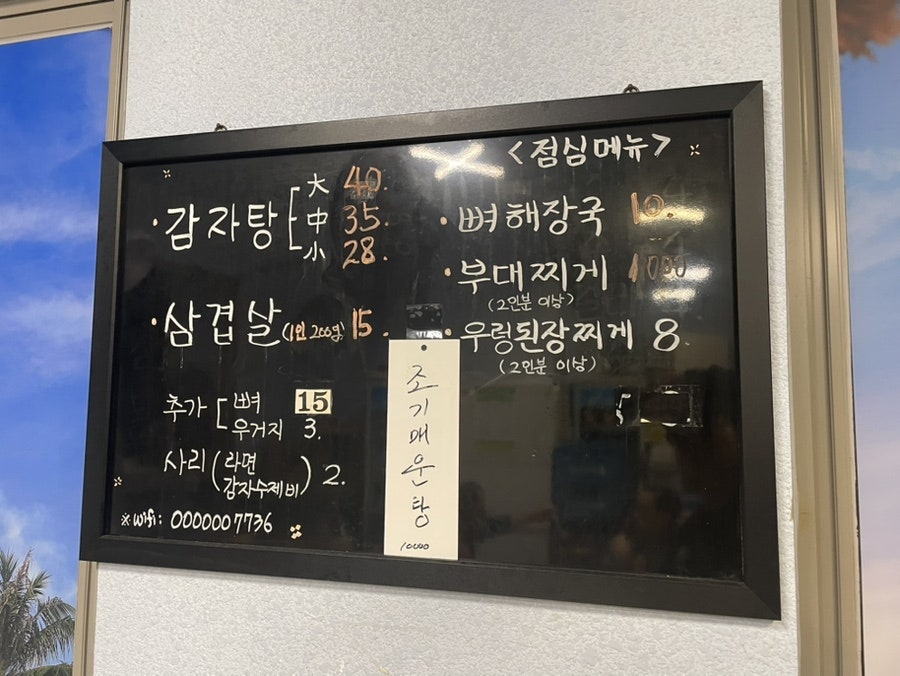 · 감자탕 [ 大 40.
中 35.
小 28.
· 삼겹살 (1인 200g) 15.
추가 [ 뼈 15
우거지 3.
사리 ( 라면
감자수제비 ) 2.
※ wifi: 0000007736
조기매운탕
10000
<점심메뉴>
· 뼈해장국 10.
· 부대찌게
(2인분 이상)
· 우렁된장찌게 8.
(2인분 이상)